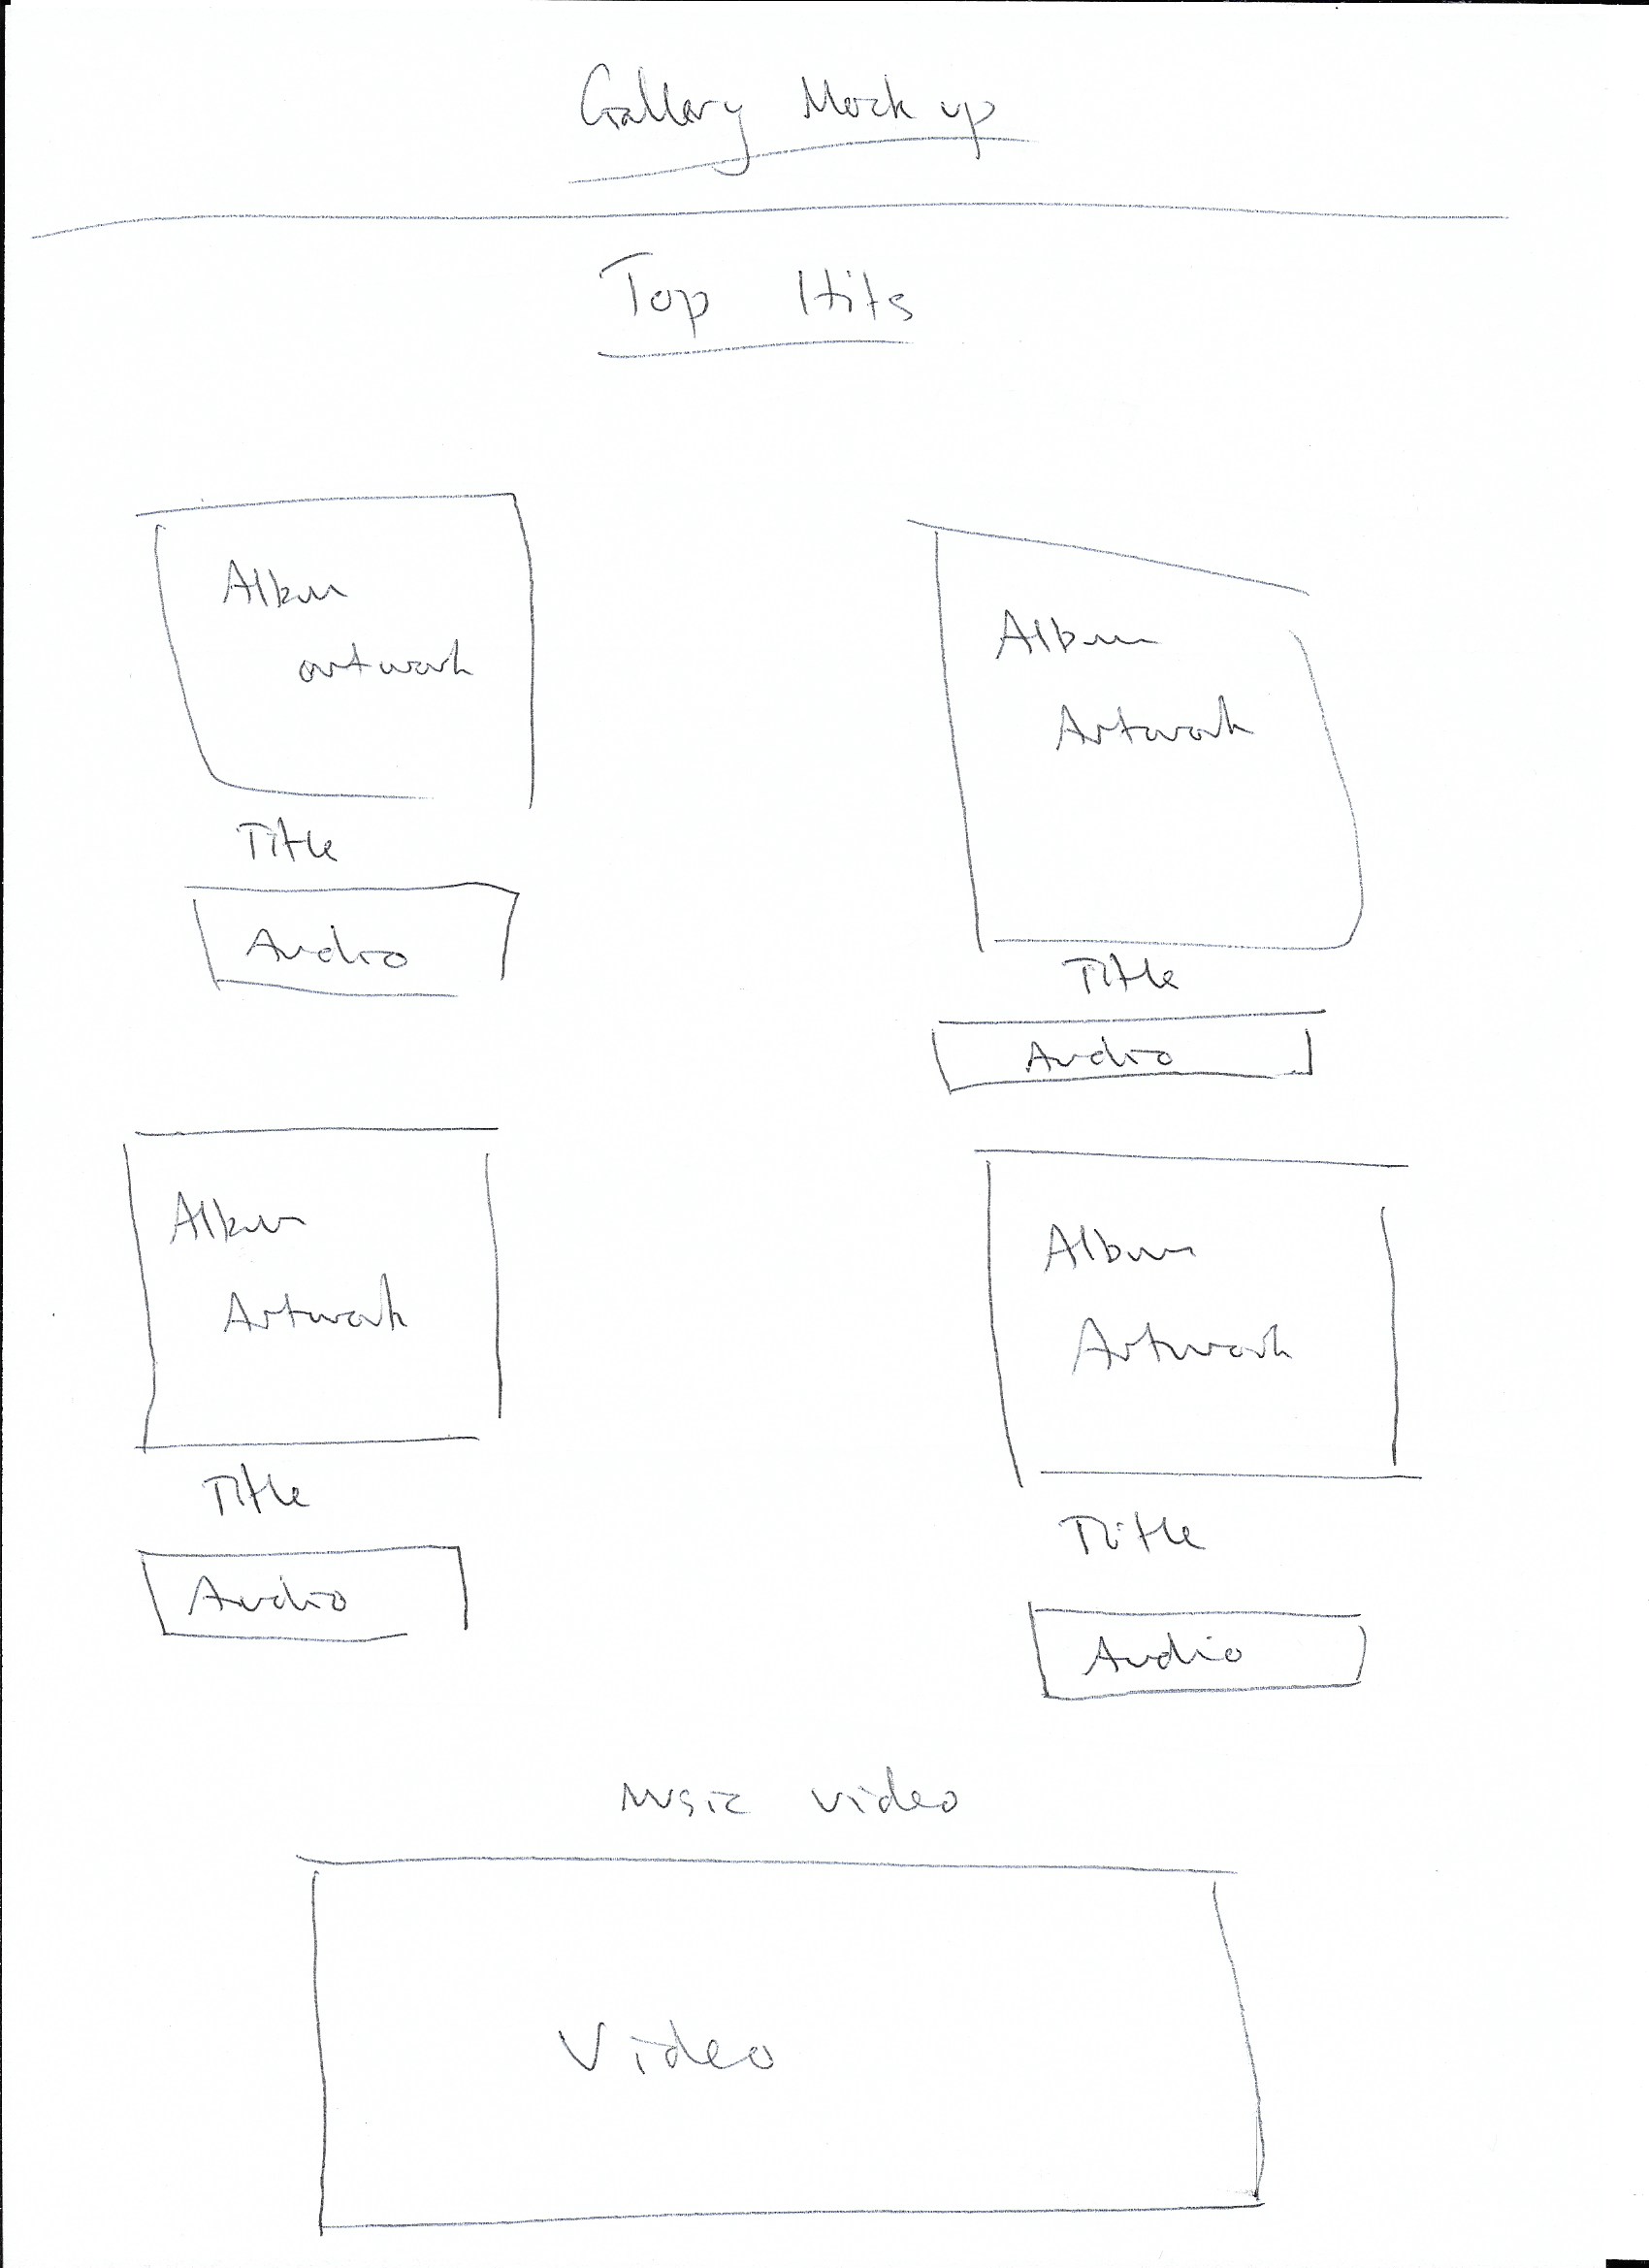 Gallery Mock up
Top Hits
Album
artwork
Title
Audio
Album
Artwork
Title
Audio
Album
Artwork
Title
Audio
Album
Artwork
Title
Audio
Music video
Video